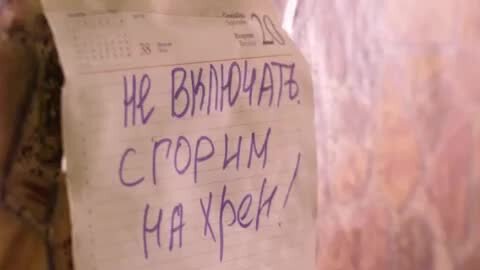 20
38
НЕ ВКЛЮЧАТЬ.
СГОРИМ
НА ХРЕН!